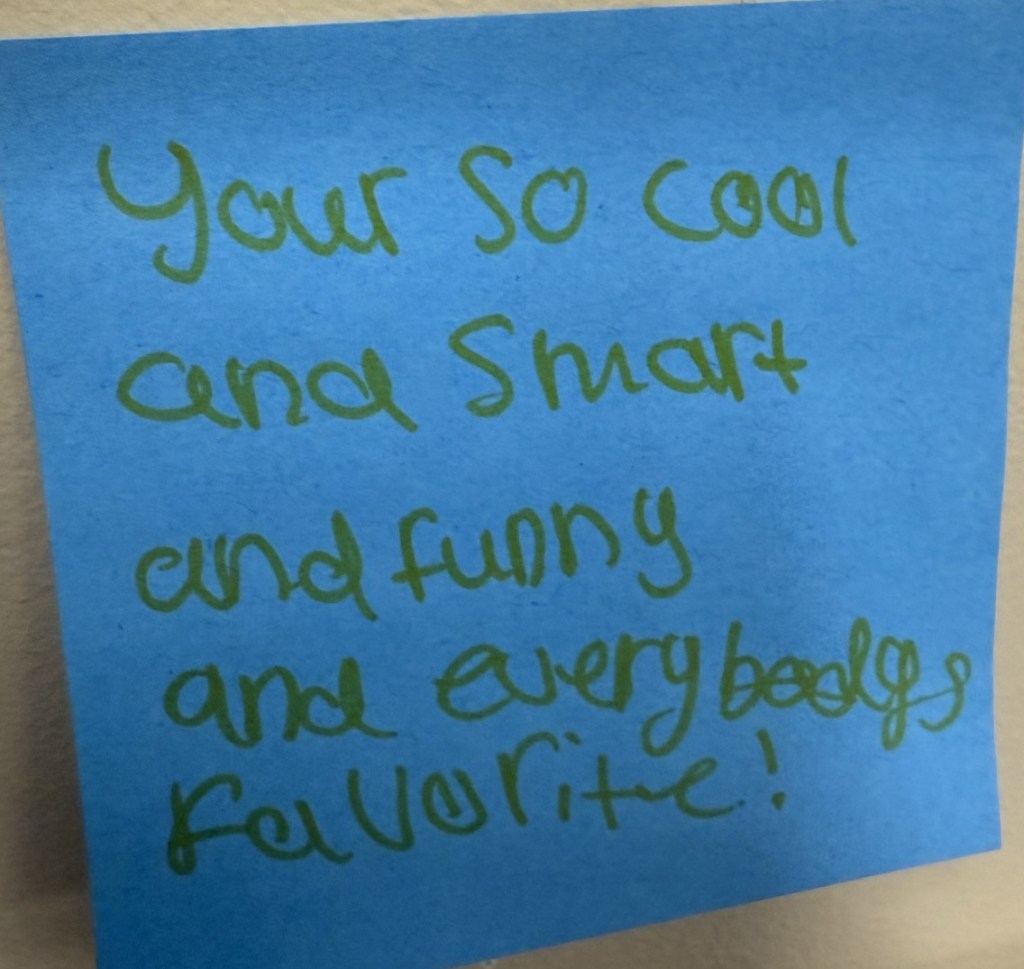 Your so cool
and smart
and funny
and everybodys
favorite!